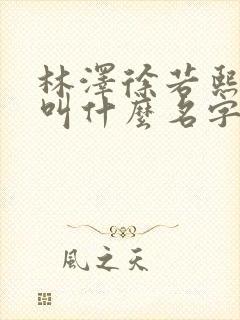 林澤徐若熙
叫什麼名字
風之天